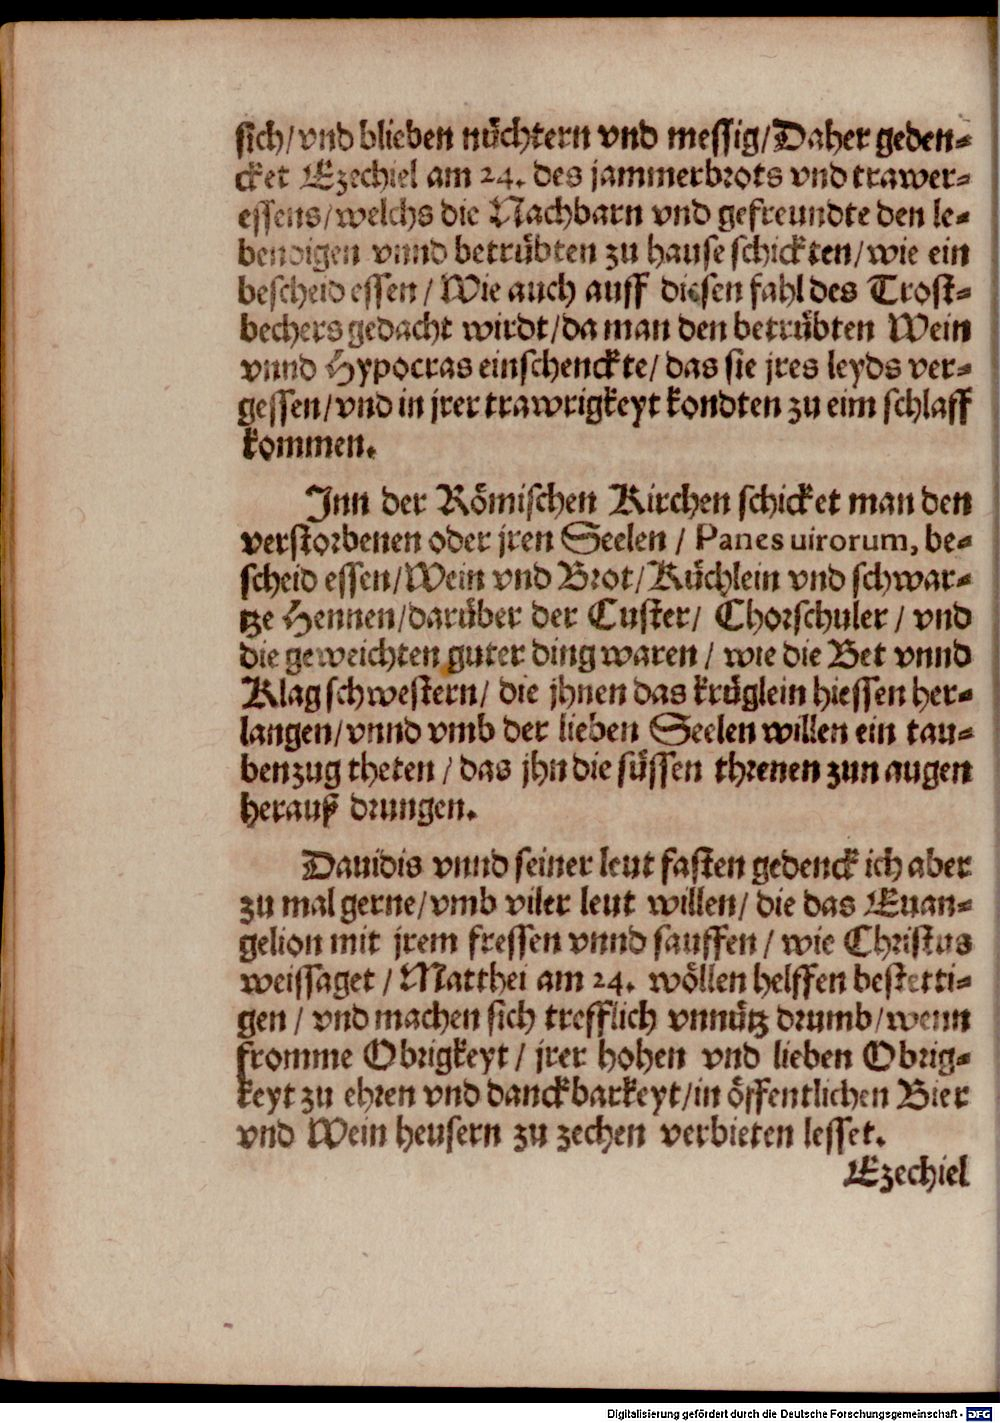 sich/vnd blieben nüchtern vnd messig/Daher geden-
cket Ezechiel am 24. des jammerbrots vnd trawer-
essens/welchs die Nachbarn vnd gefreundte den le-
bendigen vnnd betrübten zu hause schickten/wie ein
bescheid essen/Wie auch auff diesen fahl des Trost-
bechers gedacht wirdt/da man den betrübten Wein
vnnd Hypocras einschenckte/das sie jres leyds ver-
gessen/vnd in jrer trawrigkeyt kondten zu eim schlaff
kommen.
Inn der Römischen Kirchen schicket man den
verstorbenen oder jren Seelen / Panes uirorum, be-
scheid essen/Wein vnd Brot/Küchlein vnd schwar-
tze Hennen/darüber der Custer/ Chorschuler / vnd
die geweichten guter ding waren / wie die Bet vnnd
Klagschwestern/ die jhnen das krüglein hiessen her-
langen/vnnd vmb der lieben Seelen willen ein tau-
benzug theten / das jhn die süssen threnen zun augen
herauß drungen.
Dauidis vnnd seiner leut fasten gedenck ich aber
zu mal gerne/vmb viler leut willen/ die das Euan-
gelion mit jrem fressen vnnd sauffen / wie Christus
weissaget / Matthei am 24. wöllen helffen bestetti-
gen / vnd machen sich trefflich vnnütz drumb/wenn
fromme Obrigkeyt / jrer hohen vnd lieben Obrig-
keyt zu ehren vnd danckbarkeyt/in öffentlichen Bier
vnd Wein heusern zu zechen verbieten lesset.
Ezechiel
Digitalisierung gefördert durch die Deutsche Forschungsgemeinschaft - DFG